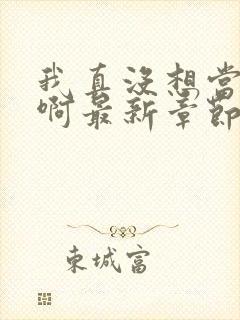 我真没想当
啊最新章节
东城富